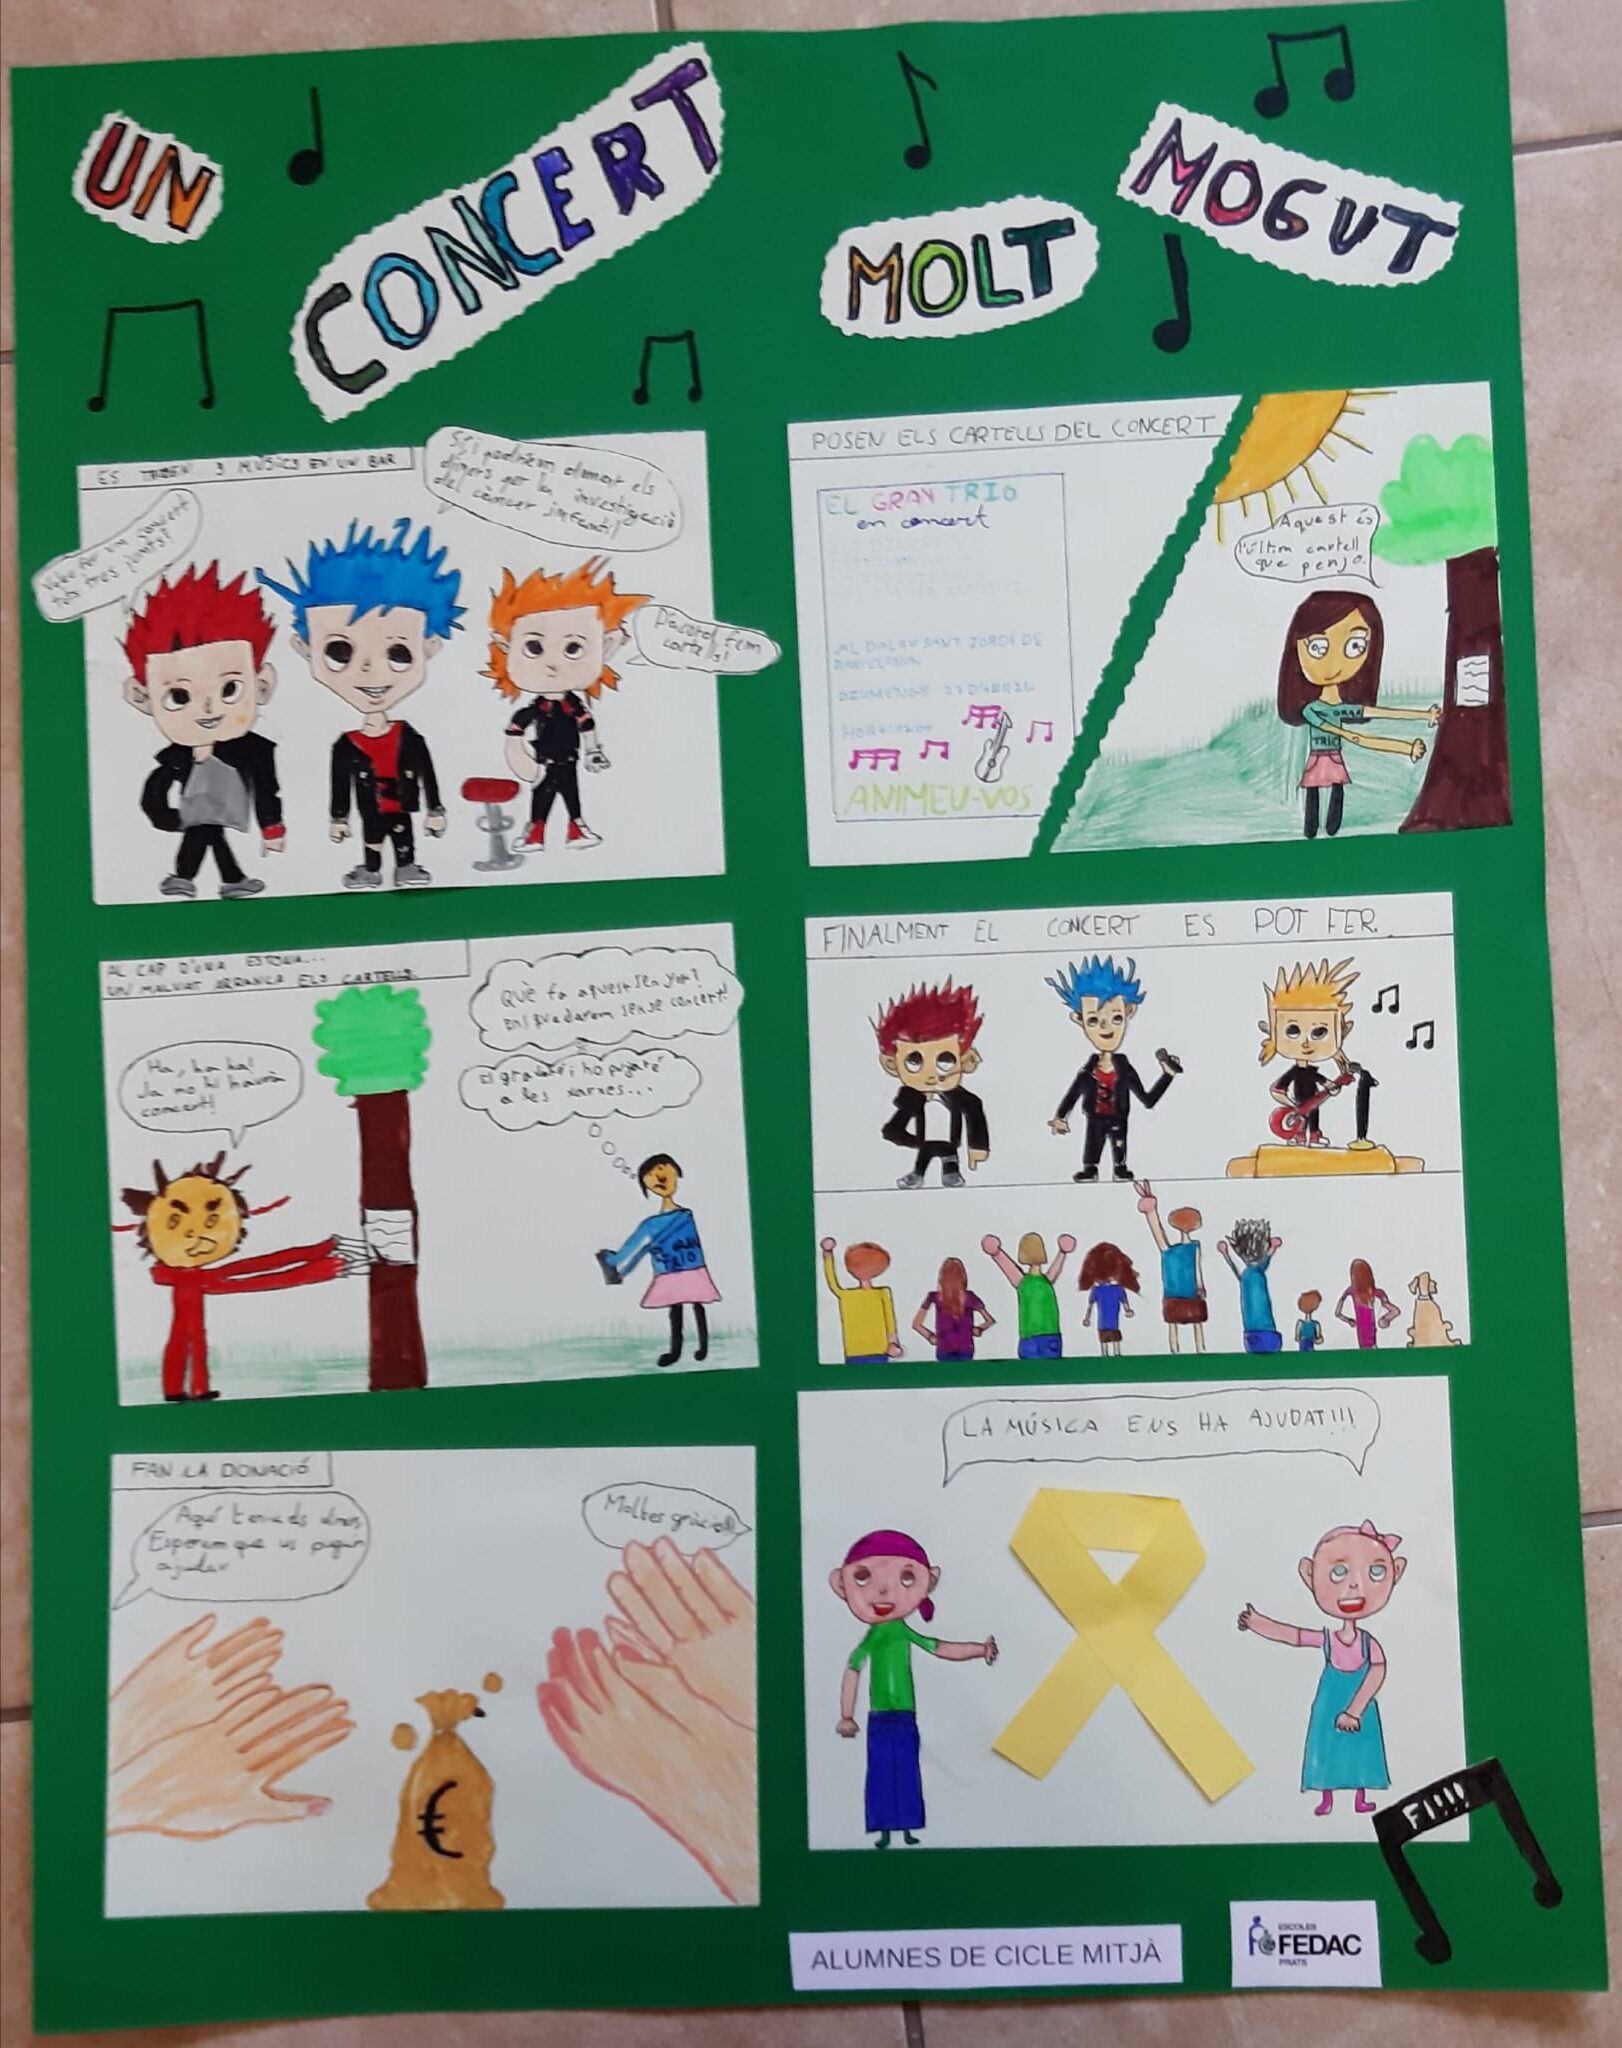 UN
CONCERT
MOLT
MOGUT
ES TROBEN 3 MÚSICS EN UN BAR
Voleu fer un concert
tots tres junts?
Sí! podríem els
diners per la investigació
del càncer infantil!
D'acord, fem
cartells!
POSEN ELS CARTELLS DEL CONCERT
EL GRAN TRIO
en concert
AL PALAU SANT JORDI DE
BARCELONA
DIUMENGE 27 D'ABRIL
ANIMEU-VOS
Aquest és
l'últim cartell
que penjo.
GRAN
TRIO
AL CAP D'UNA ESTONA...
UN MALVAT ARRANCA ELS CARTELLS.
Ha, ha ha!
Ja no hi haurà
concert!
Què fa aquest senyor?
Ens quedarem sense concert!
El gravaré i ho pujaré
a les xarxes...
GRAN
TRIO
FINALMENT EL CONCERT ES POT FER.
FAN LA DONACIÓ
Aquí teniu els diners
Esperem que us pugui
ajudar
Moltes gràcies!!
LA MÚSICA ENS HA AJUDAT!!!
€
FI!!!!
ALUMNES DE CICLE MITJÀ
ESCOLES
FEDAC
PRATS